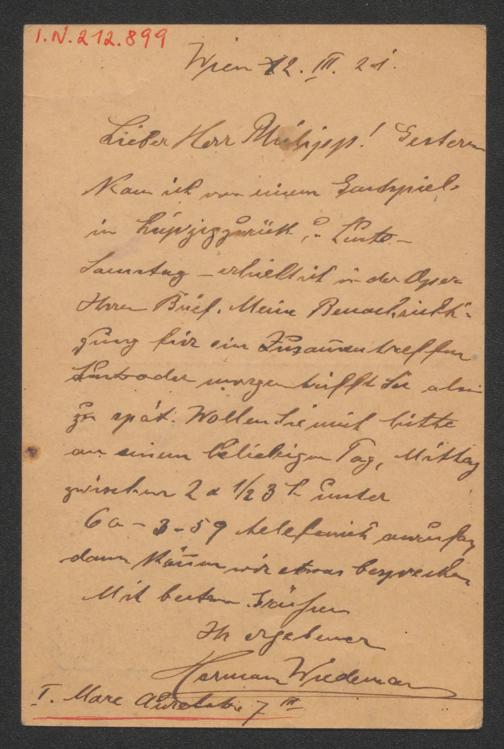 I.N.212.899
Wien 12. III. 21.
Lieber Herr Philipp! Gestern
kam ich von einem Gastspiel
in Leipzig zurück, – heute –
Samstag – erhielt ich in der Oper
Ihren Brief. Meine Benachrichti-
gung für ein Zusammentreffen
heute oder morgen trifft Sie also
zu spät. Wollen Sie mich bitte
an einem beliebigen Tag, Mittag
zwischen 2 & 1/2 3 h unter
60-3-59 telefonisch anrufen
dann können wir etwas besprechen
Mit besten Grüßen
Ihr ergebener
Herman Wiedeman
I. Marc Aurelstr. 7 III